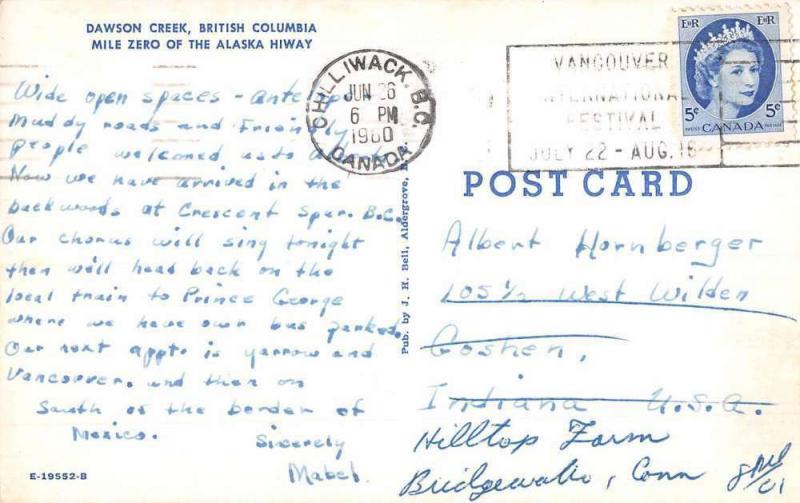 DAWSON CREEK, BRITISH COLUMBIA
MILE ZERO OF THE ALASKA HIWAY
Wide open spaces -
Muddy roads and Friendly
people welcomed us to
Now we have arrived in the
backwoods at Crescent Spur. B.C.
Our chorus will sing tonight
then we'll head back on the
local train to Prince George
where we have own bus parked.
Our next appt. is yarrow and
Vancouver. and then on
South of the border of
Mexico. Sincerely
Mabel.
E-19552-B
CHILLIWACK. B.C.
JUN 26
6 PM
1960
CANADA
VANCOUVER
INTERNATIONAL
FESTIVAL
JULY 22 - AUG. 16
E II R E II R
5¢ 5¢
CANADA
Pub. by J. H. Bell, Aldergrove, B.
POST CARD
Albert Hornberger
105 1/2 West Wilden
Goshen,
Indiana U.S.A.
Hilltop Farm
Bridgewater, Conn